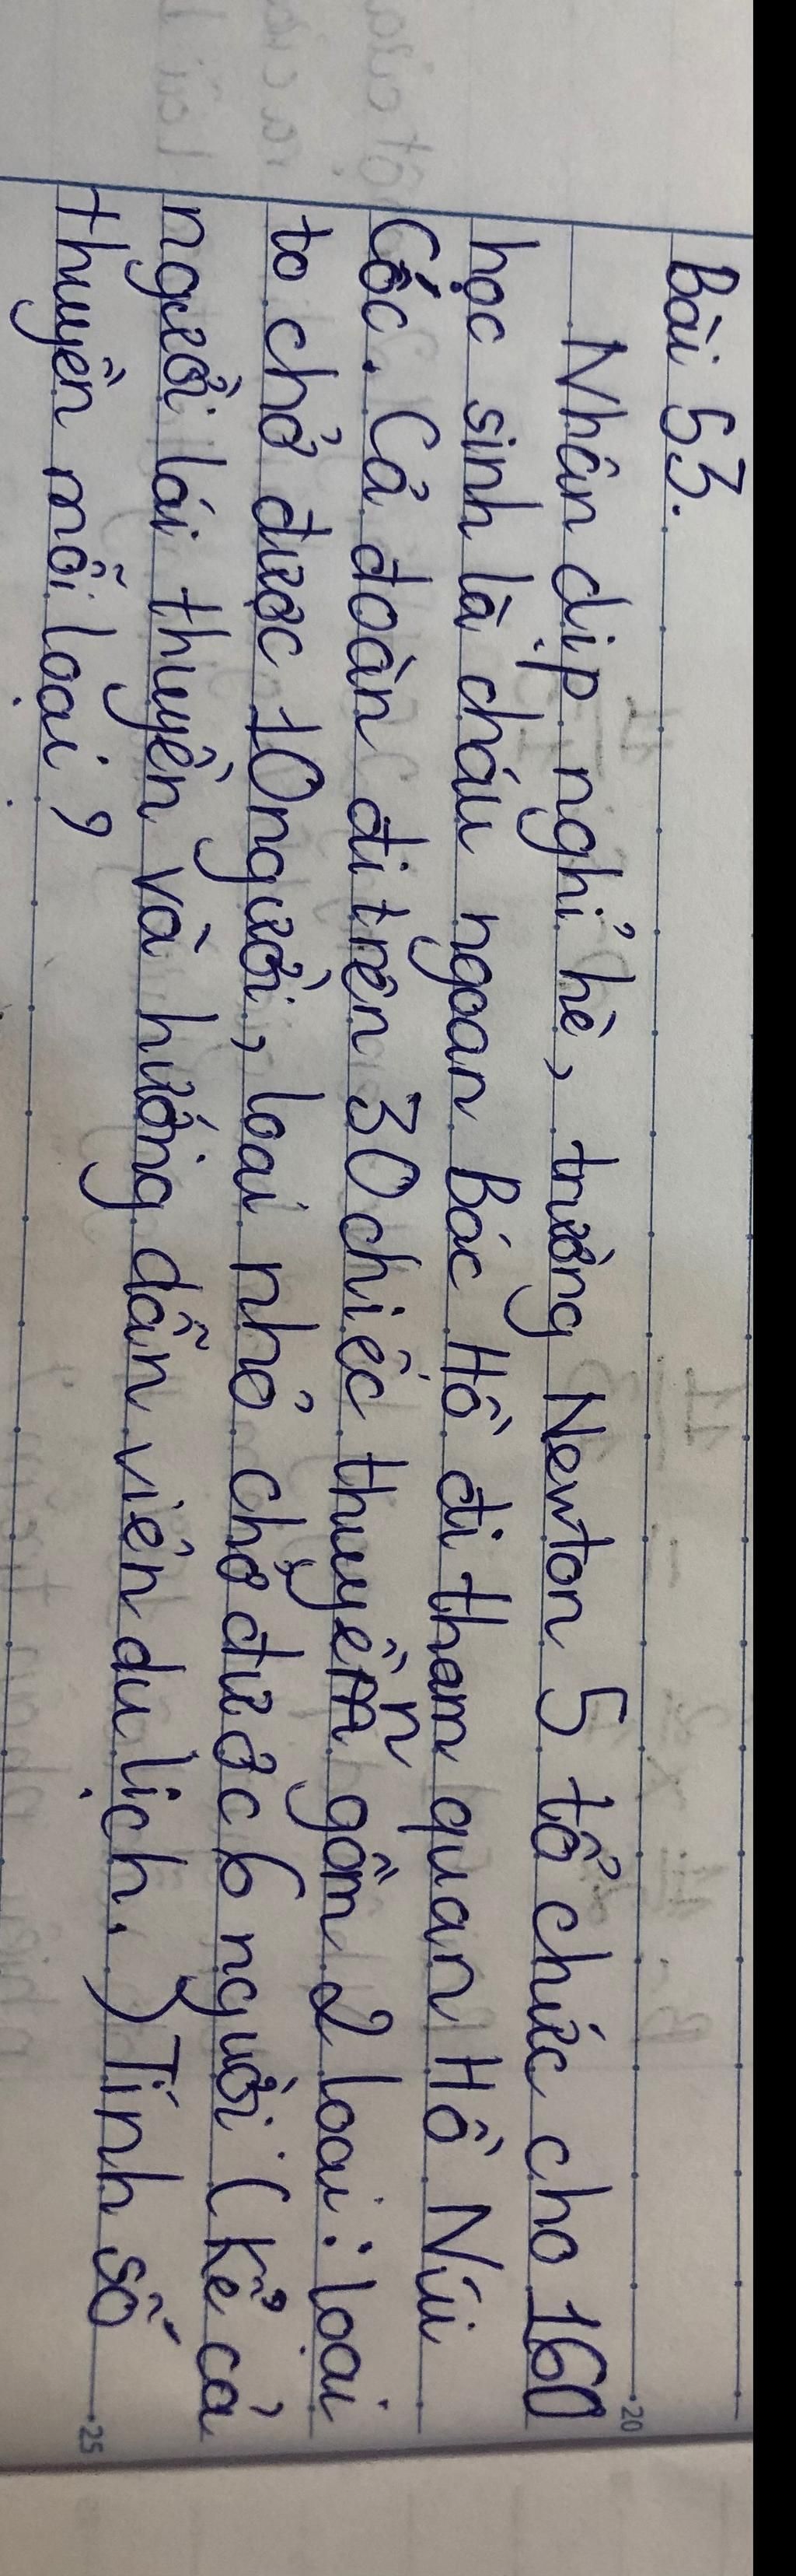 Bài 53.
Nhân dịp nghỉ hè, trường Newton 5 tổ chức cho 160
học sinh là cháu ngoan Bác Hồ đi tham quan Hồ Núi
Cốc. Cả đoàn đi trên 30 chiếc thuyền gồm 2 loại: loại
to chở được 10 người, loại nhỏ chở được 6 người (kể cả
người lái thuyền và hướng dẫn viên du lịch.) Tính số
thuyền mỗi loại?
20
25